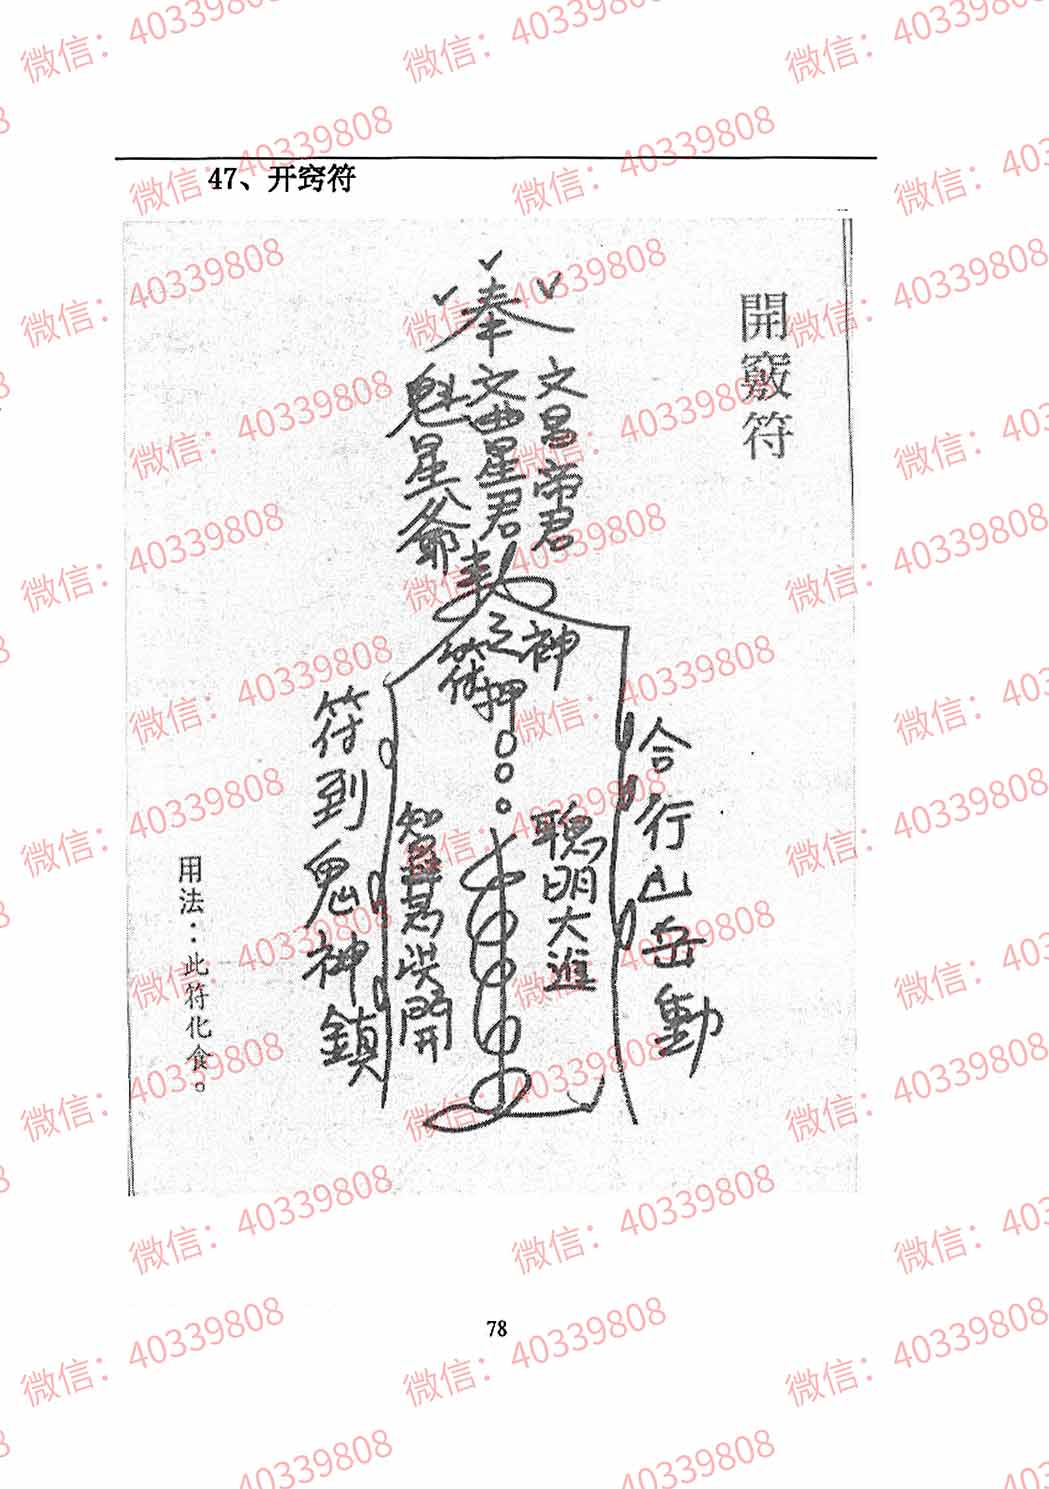 47、开窍符
開竅符
奉
文昌帝君
文曲星君
魁星爺
神
符
押
合行山岳動
聰明大進
符到鬼神鎮
用法：此符化食。
78
微信：40339808